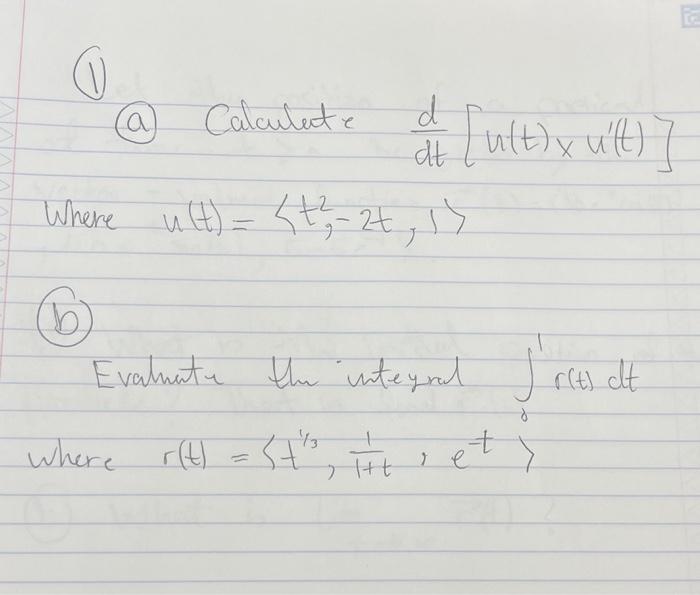 ①
ⓐ Calculate d/dt [u(t) × u'(t)]
Where u(t) = ⟨t², -2t, 1⟩
ⓑ
Evaluate the integral ∫₀¹ r(t) dt
where r(t) = ⟨t^{1/3}, 1/(1+t), e^{-t}⟩